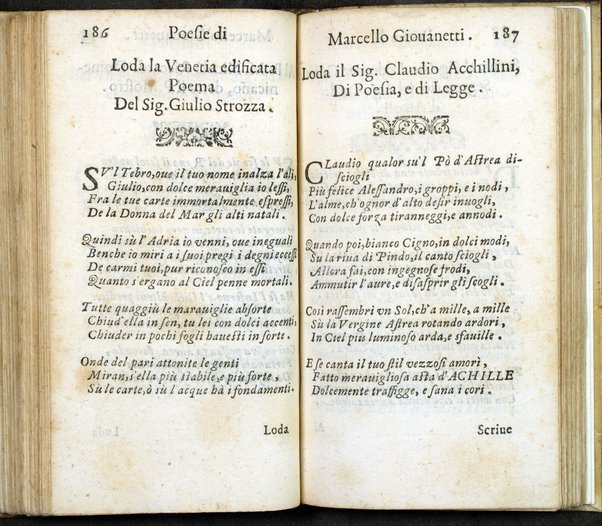 186 Poesie di
Loda la Venetia edificata
Poema
Del Sig. Giulio Strozza.
SV'l Tebro, oue il tuo nome inalza l'ali,
Giulio, con dolce merauiglia io lessi,
Fra le tue carte immortalmente espressi,
De la Donna del Mar gli alti natali.
Quindi sù l'Adria io venni, oue ineguali
Benche io miri a i suoi pregi i degni eccessi
De carmi tuoi, pur riconosco in essi
Quanto s'ergano al Ciel penne mortali.
Tutte quaggiù le marauiglie absorte
Chiud'ella in sen, tu lei con dolci accenti,
Chiuder in pochi fogli hauesti in sorte.
Onde del pari attonite le genti
Miran, s'ella più stabile, e più forte,
Sù le carte, ò su l'acque hà i fondamenti.
Loda
Marcello Giouanetti. 187
Loda il Sig. Claudio Acchillini,
Di Poesia, e di Legge.
CLaudio qualor su'l Pò d'Astrea di-
sciogli
Più felice Alessandro, i groppi, e i nodi,
L'alme, ch'ognor d'alto desir inuogli,
Con dolce forza tiranneggi, e annodi.
Quando poi, bianco Cigno, in dolci modi,
Su la riua di Pindo, il canto sciogli,
Allora fai, con ingegnose frodi,
Ammutir l'aure, e disasprir gli scogli.
Così rassembri vn Sol, ch'a mille, a mille
Sù la Vergine Astrea rotando ardori,
In Ciel più luminoso arda, e sfauille.
E se canta il tuo stil vezzosi amori,
Fatto merauigliosa asta d'ACHILLE
Dolcemente traffigge, e sana i cori.
Scriue